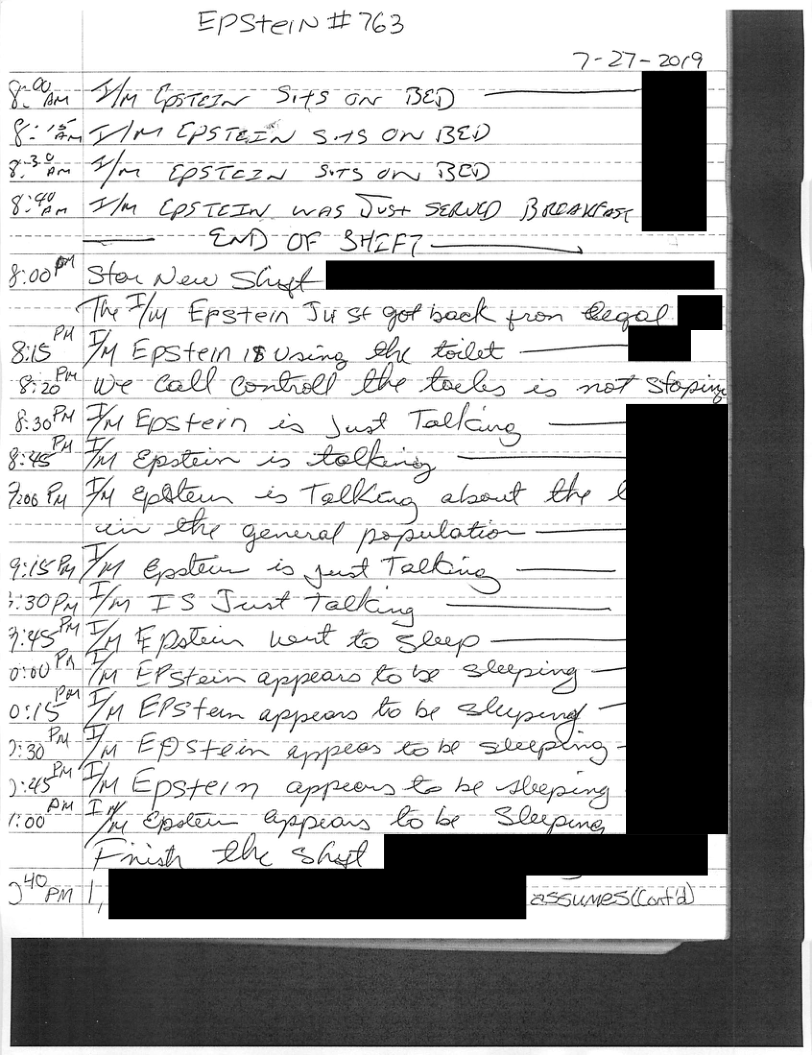 EPStEiN # 763
7-27-2019
8:00 AM I/M EPSTEIN SITS ON BED
8:15 AM I/M EPSTEIN SITS ON BED
8:30 AM I/M EPSTEIN SITS ON BED
8:40 AM I/M EPSTEIN WAS JUST SERVED BREAKFAST
END OF SHIFT
8:00 PM Star New Shift
The I/M Epstein Just got back from legal
8:15 PM I/M Epstein is using the toilet
8:20 PM We call Controll the is not stoping
8:30 PM I/M Epstein is just Talking
8:45 PM I/M Epstein is talking
9:00 PM I/M Epstein is Talking about the
in the general population
9:15 PM I/M Epstein is just Talking
:30 PM I/M IS Just Talking
9:45 PM I/M Epstein went to sleep
0:00 PM I/M EPstein appears to be sleeping
0:15 PM I/M EPStein appears to be sleeping
:30 PM I/M EPStein appears to be sleeping
:45 PM I/M Epstein appears to be sleeping
:00 PM I/M Epstein appears to be Sleeping
Finish the Shift
40 PM I, assumes (Cont'd)